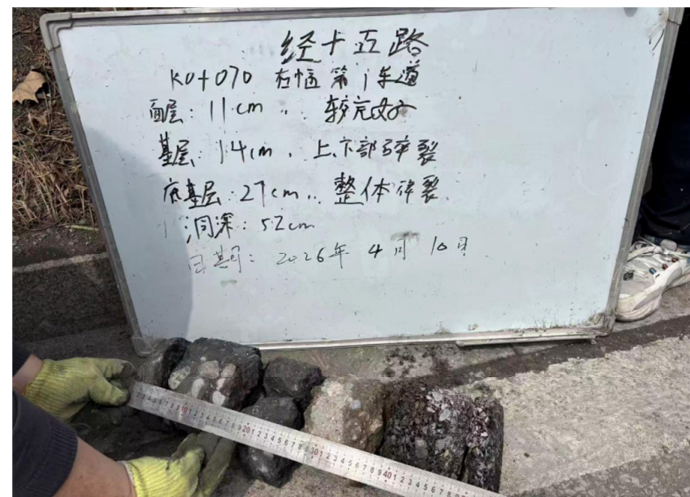 经十五路
K0+070 右幅 第1车道
面层:11cm, 较完好
基层:14cm, 上下部碎裂
底基层:27cm, 整体碎裂
洞深:52cm
日期:2026年4月10日